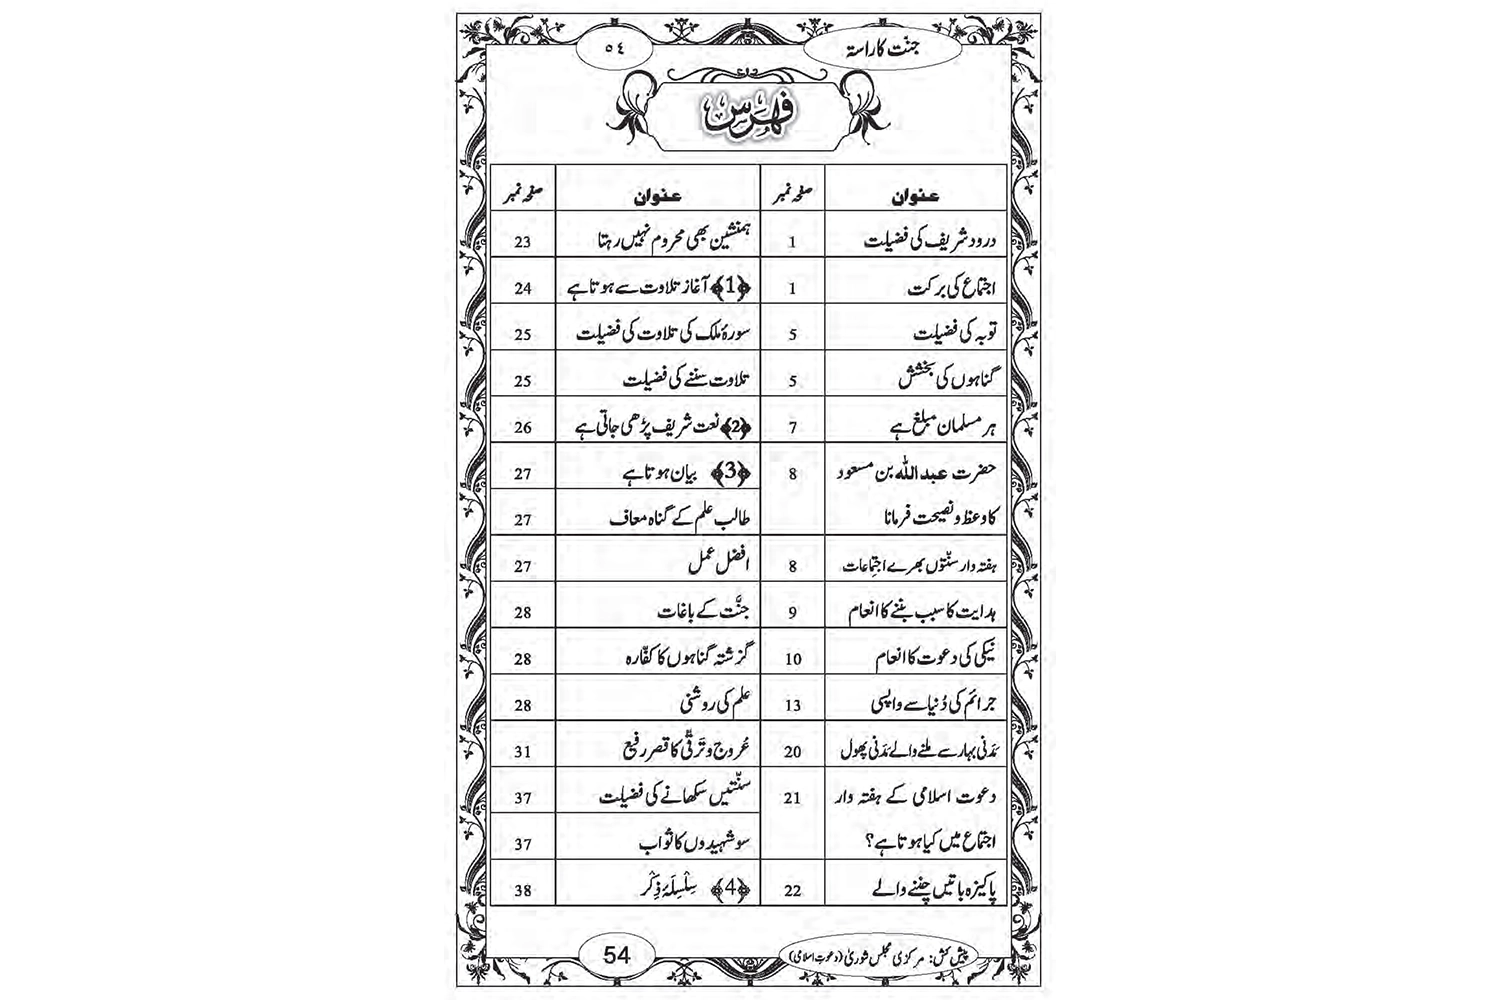 جنّت کا راستہ
٥٤
فہرس
عنوان صفحہ نمبر
درود شریف کی فضیلت 1
اجتماع کی برکت 1
توبہ کی فضیلت 5
گناہوں کی بخشش 5
ہر مسلمان مبلغ ہے 7
حضرت عبداللہ بن مسعود 8
کا وعظ و نصیحت فرمانا
ہفتہ وار سنّتوں بھرے اجتِماعات 8
ہدایت کا سبب بننے کا انعام 9
نیکی کی دعوت کا انعام 10
جرائم کی دُنیا سے واپسی 13
مَدَنی بہار سے ملنے والے مَدَنی پھول 20
دعوت اسلامی کے ہفتہ وار 21
اجتماع میں کیا ہوتا ہے؟
پاکیزہ باتیں چننے والے 22
عنوان صفحہ نمبر
ہمنشین بھی محروم نہیں رہتا 23
﴿1﴾ آغاز تلاوت سے ہوتا ہے 24
سورۂ ملک کی تلاوت کی فضیلت 25
تلاوت سننے کی فضیلت 25
﴿2﴾ نعت شریف پڑھی جاتی ہے 26
﴿3﴾ بیان ہوتا ہے 27
طالب علم کے گناہ معاف 27
افضل عمل 27
جنَّت کے باغات 28
گزشتہ گناہوں کا کفّارہ 28
علم کی روشنی 28
عُروج و تَرقّی کا قصر رفیع 31
سنّتیں سکھانے کی فضیلت 37
سو شہیدوں کا ثواب 37
﴿4﴾ سِلْسِلَۂ ذِکْر 38
پیش کش: مرکزی مجلس شوریٰ (دعوتِ اسلامی)
54